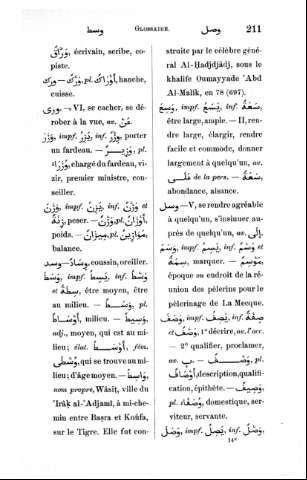 وسط GLOSSAIRE. وصل 211
وَرَّاقٌ, écrivain, scribe, co-
piste.
ورك — وَرْكٌ, pl. أَوْرَاكٌ, hanche,
cuisse.
ورى. — VI, se cacher, se dé-
rober à la vue, ac. عَنْ.
وَزَرَ, impf. يَزِرُ, inf. وِزْرٌ, porter
un fardeau. — وَزِيرٌ, pl.
وُزَرَاءُ, chargé du fardeau, vi-
zir, premier ministre, con-
seiller.
وَزَنَ, impf. يَزِنُ, inf. وَزْنٌ et
زِنَةٌ, peser. — وَزْنٌ, pl. أَوْزَانٌ,
poids. — مِيزَانٌ, pl. مَوَازِينُ,
balance.
وسد — وِسَادٌ, coussin, oreiller.
وَسَطَ, impf. يَسِطُ, inf. وَسْطٌ
et سِطَةٌ, être moyen, être
au milieu. — وَسَطٌ, pl.
أَوْسَاطٌ, milieu. — وَسِيطٌ,
adj., moyen, qui est au mi-
lieu; élat. أَوْسَطُ, fém.
وُسْطَى, qui se trouve au mi-
lieu; d'âge moyen. — وَاسِطٌ,
nom propre, Wâsiṭ, ville du
'Irâḳ al-'Adjamî, à mi-che-
min entre Baṣra et Koûfa,
sur le Tigre. Elle fut con-
struite par le célèbre géné-
ral Al-Ḥadjdjâdj, sous le
khalife Oumayyade 'Abd
Al-Malik, en 78 (697).
وَسِعَ, impf. يَسَعُ, inf. سَعَةٌ,
être large, ample. — II, ren-
dre large, élargir, rendre
facile et commode, donner
largement à quelqu'un, ac.
عَلَى de la pers. — سَعَةٌ,
abondance, aisance.
وسل — V, se rendre agréable
à quelqu'un, s'insinuer au-
près de quelqu'un, ac. إِلَى.
وَسَمَ, impf. يَسِمُ, inf. وَسْمٌ et
سِمَةٌ, marquer. — مَوْسِمٌ,
époque ou endroit de la ré-
union des pèlerins pour le
pèlerinage de La Mecque.
وَصَفَ, impf. يَصِفُ, inf. صِفَةٌ
et وَصْفٌ, 1° décrire, ac. l'acc.
— 2° qualifier, proclamer,
ac. بِ. — وَصْفٌ, pl.
أَوْصَافٌ, description, qualifi-
cation, épithète. — وَصِيفٌ,
pl. وُصَفَاءُ, domestique, ser-
viteur, servante.
وَصَلَ, impf. يَصِلُ, inf. وَصْلٌ,
14*